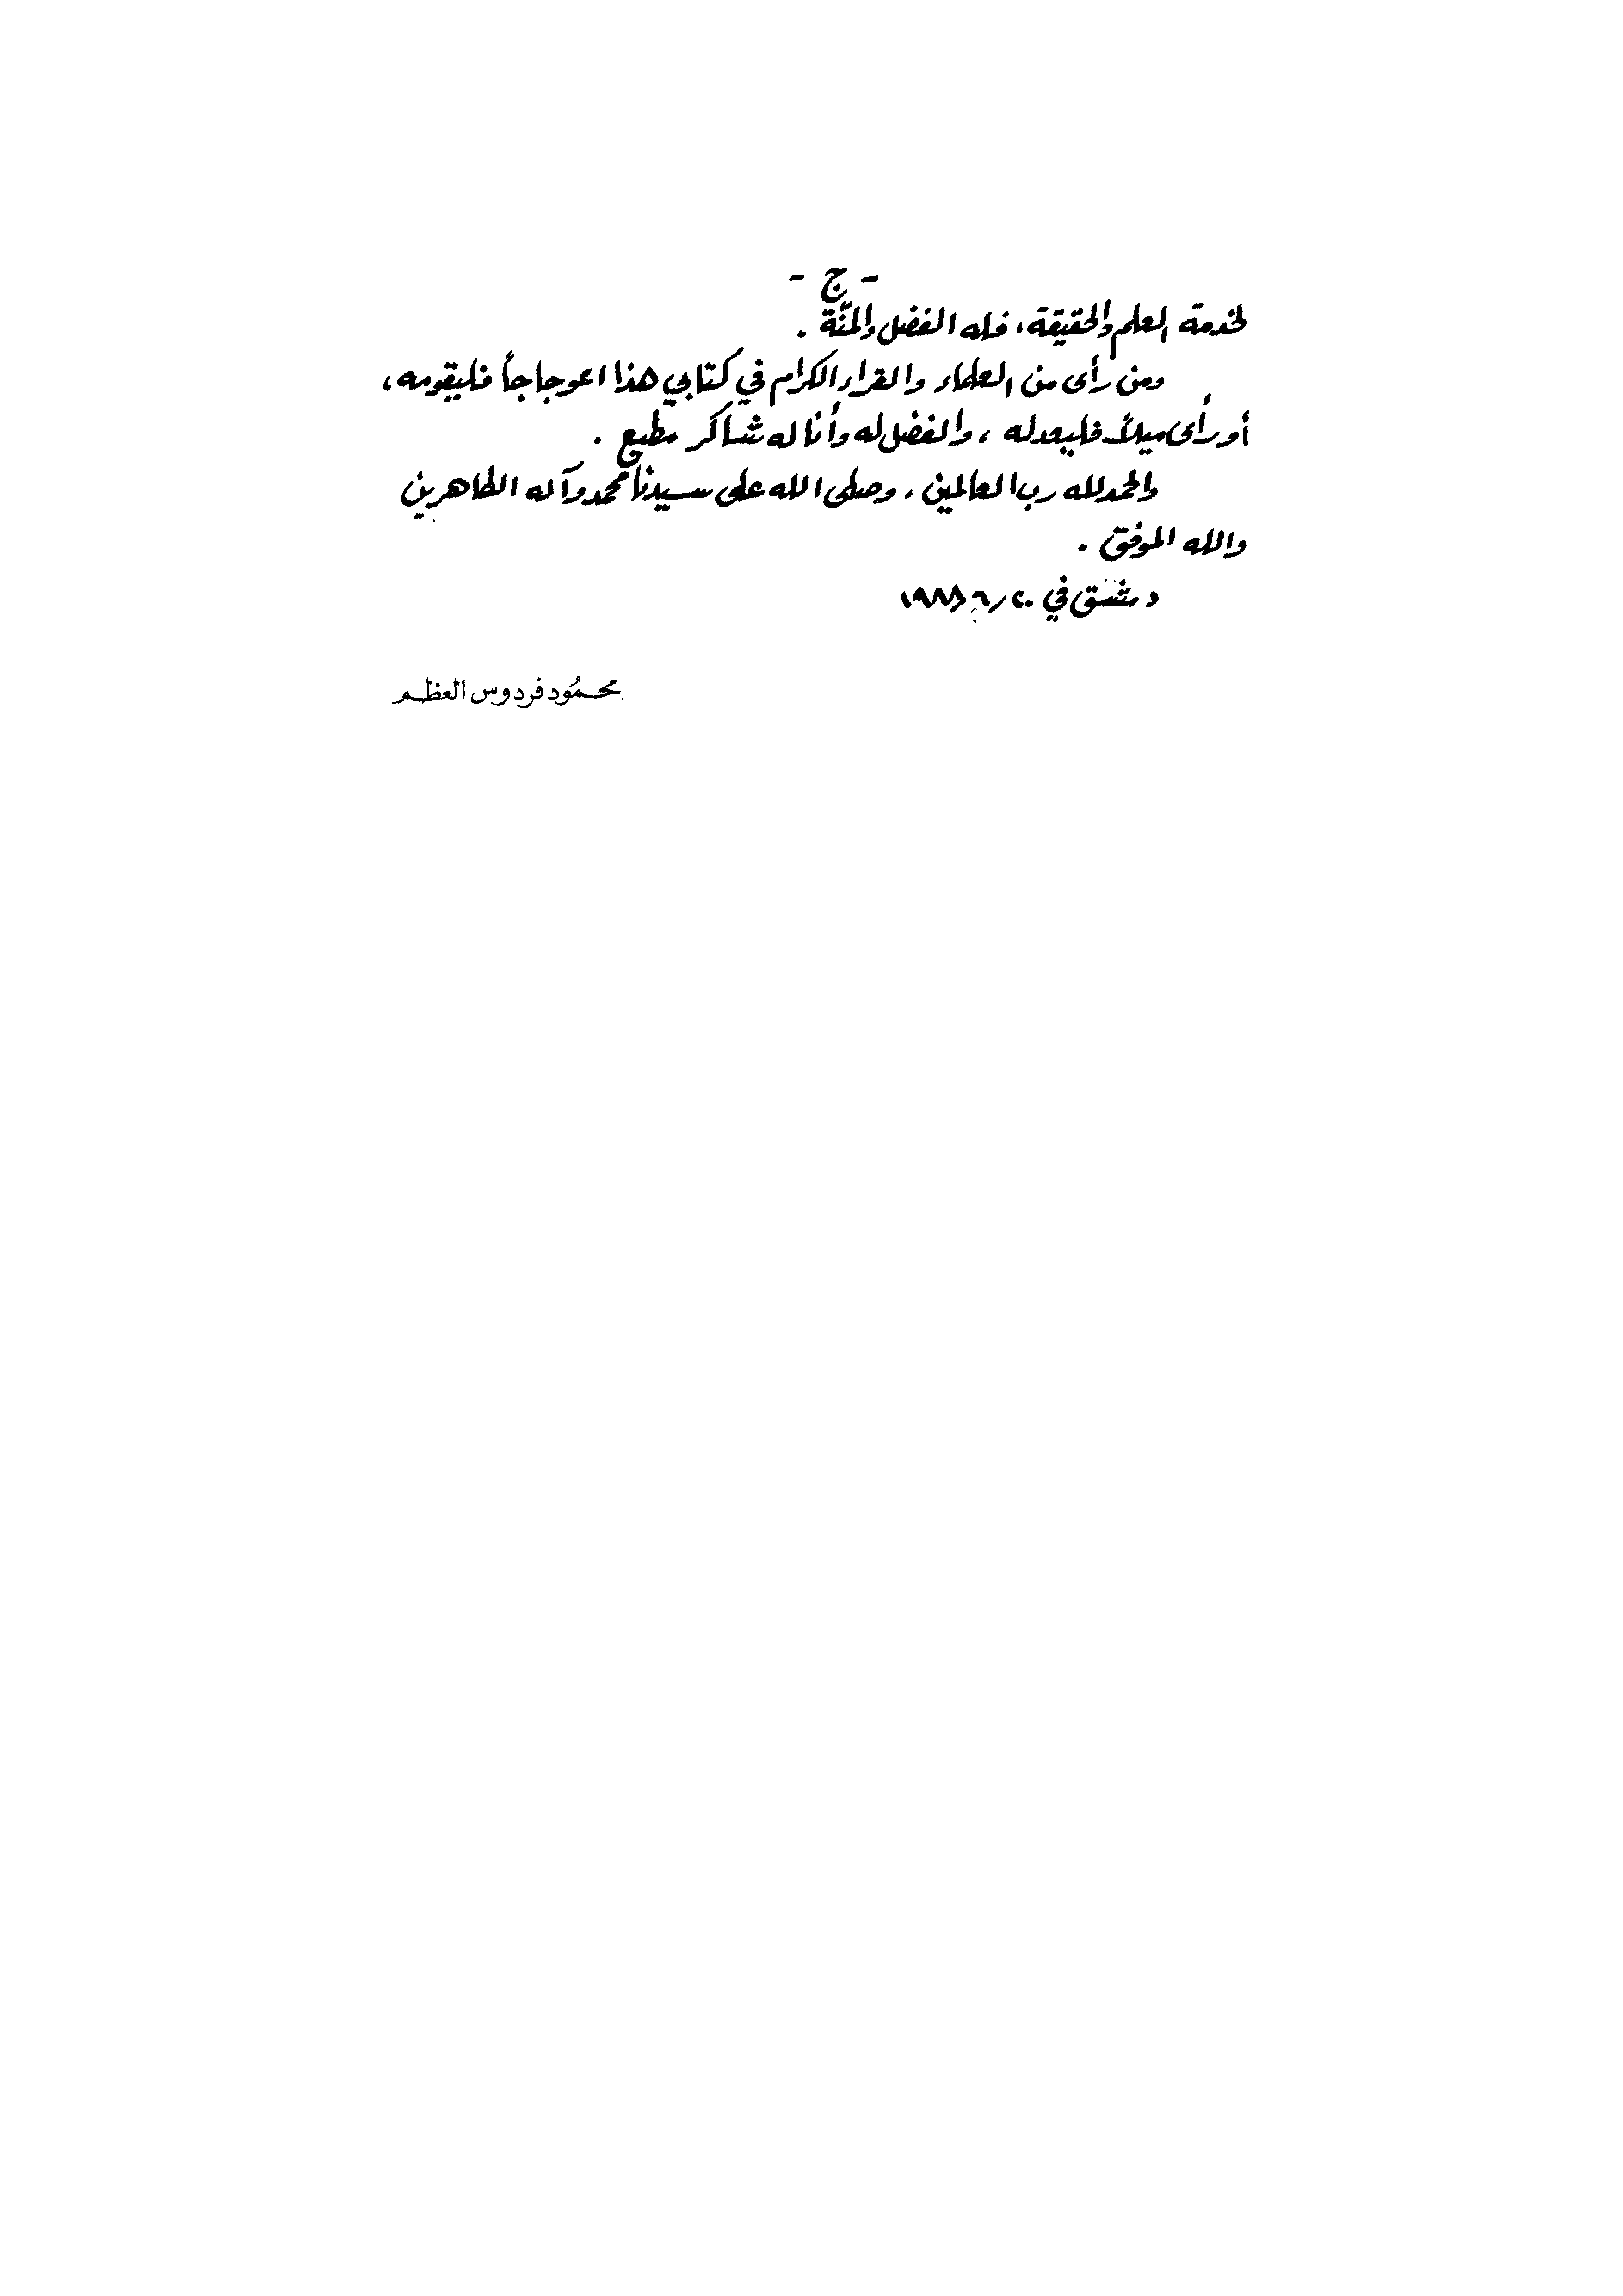 - ج -
لخدمة العلم والحقيقة، فله الفضل والمنّة .
ومن رأى من العلماء والقراء الكرام في كتابي هذا اعوجاجاً فليقومه،
أو رأى ميلاً فليعدله ، والفضل له وأنا له شاكر مطيع .
والحمد لله رب العالمين ، وصلى الله على سيدنا محمد وآله الطاهرين
والله الموفق .
دمشق في ٢٠/٦/١٩٨٨
محمُود فردوس العظم